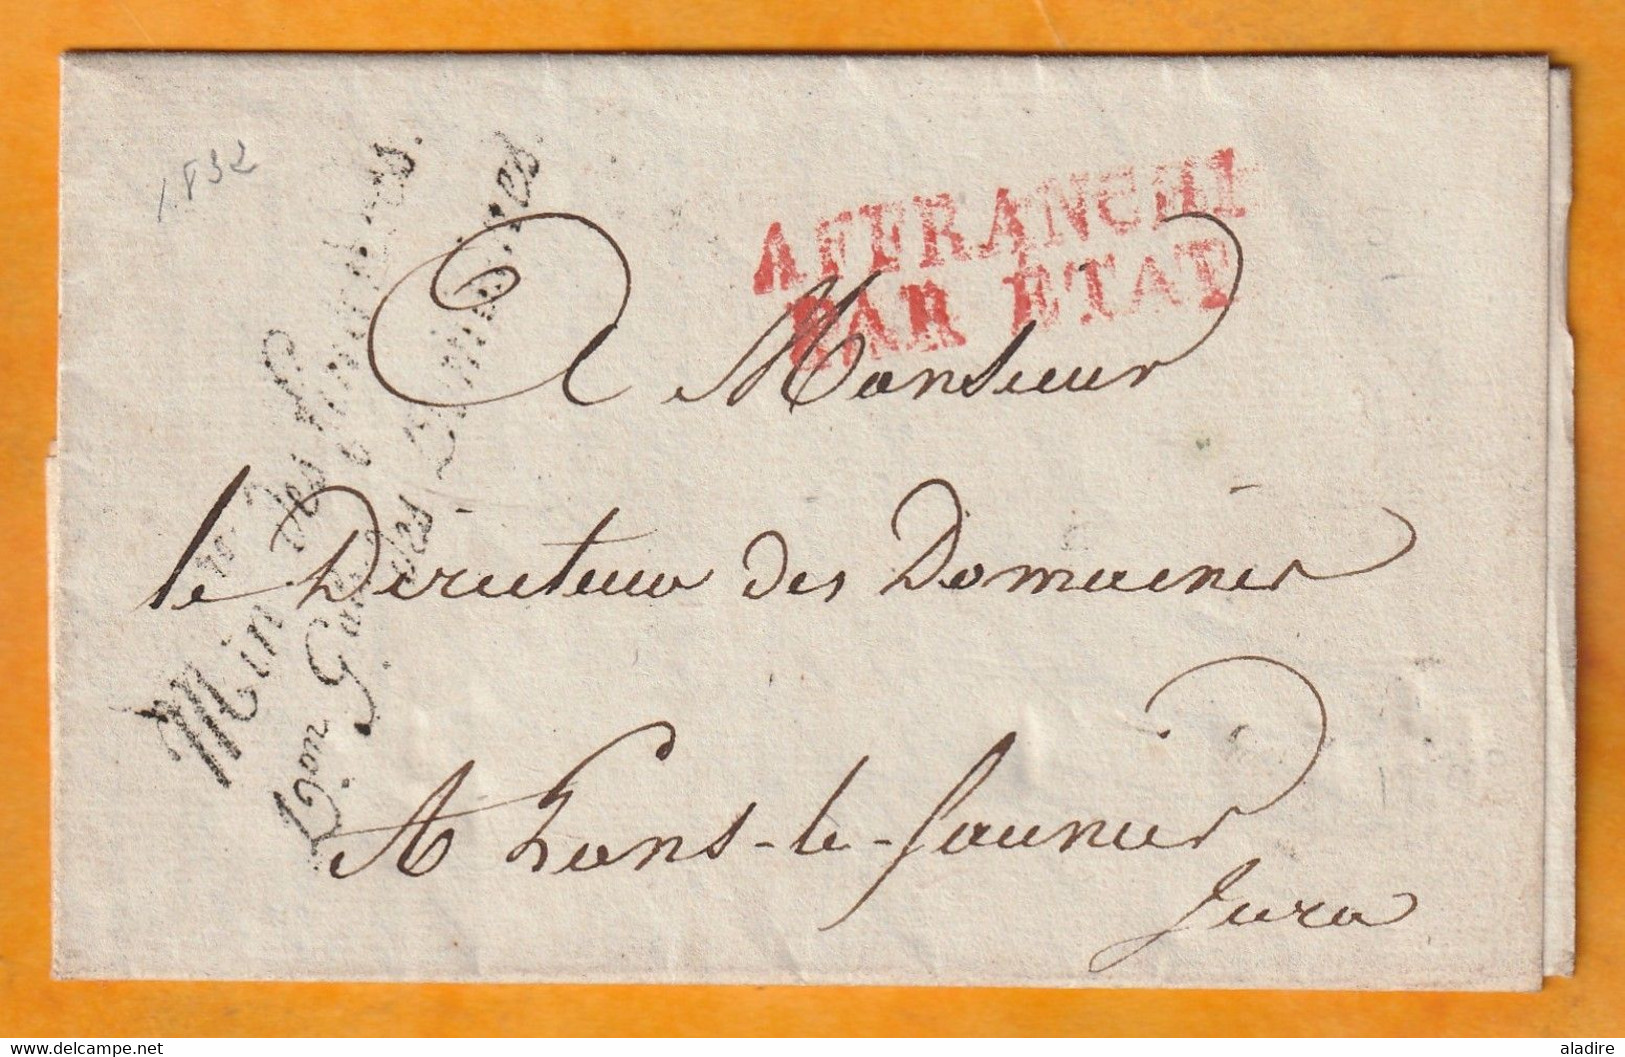 1832
AFFRANCHI
PAR ÉTAT
Min re des Finances.
Don Gale des Domaines.
A Monsieur
le Directeur des Domaines
A Lons-le-Saunier
Jura
delcampe.net
aladire